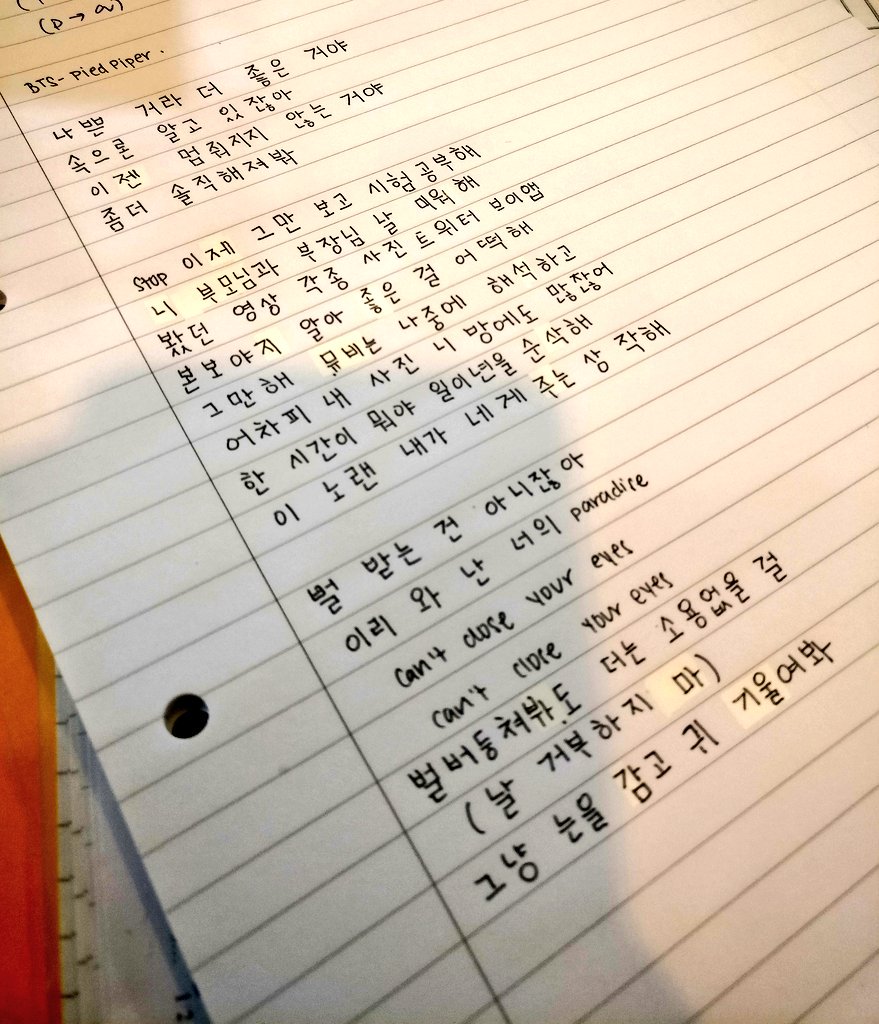 (P → a)
BTS - Pied Piper.
나쁜 거라 더 좋은 거야
속으론 알고 있잖아
이젠 멈춰지지 않는 거야
좀더 솔직해져봐
Stop 이제 그만 보고 시험공부해
니 부모님과 부장님 날 미워해
봤던 영상 각종 사진 트위터 브이앱
본보야지 알아 좋은 걸 어떡해
그만해 뮤비는 나중에 해석하고
어차피 내 사진 니 방에도 많잖어
한 시간이 뭐야 일이년을 순삭해
이 노랜 내가 네게 주는 상 작해
벌 받는 건 아니잖아
이리 와 난 너의 paradise
can't close your eyes
can't close your eyes
벌버둥쳐봐도 더는 소용없을 걸
(날 거부하지 마)
그냥 눈을 감고 귀 기울여봐